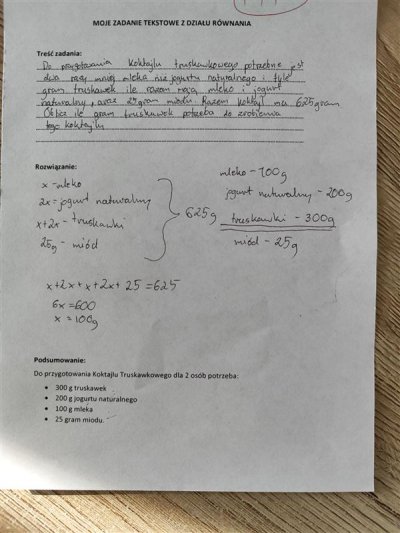 MOJE ZADANIE TEKSTOWE Z DZIAŁU RÓWNANIA
Treść zadania:
Do przygotowania koktajlu truskawkowego potrzebne jest
dwa razy mniej mleka niż jogurtu naturalnego i tyle
gram truskawek ile razem mają mleko i jogurt
naturalny, oraz 25 gram miodu. Razem koktajl ma 625 gram
Oblicz ile gram truskawek potrzeba do zrobienia
tego koktajlu
Rozwiązanie:
x - mleko
2x - jogurt naturalny
x+2x - truskawki
25g - miód
625g
mleko - 100g
jogurt naturalny - 200g
truskawki - 300g
miód - 25g
x+2x+x+2x+25=625
6x=600
x=100g
Podsumowanie:
Do przygotowania Koktajlu Truskawkowego dla 2 osób potrzeba:
• 300 g truskawek
• 200 g jogurtu naturalnego
• 100 g mleka
• 25 gram miodu.